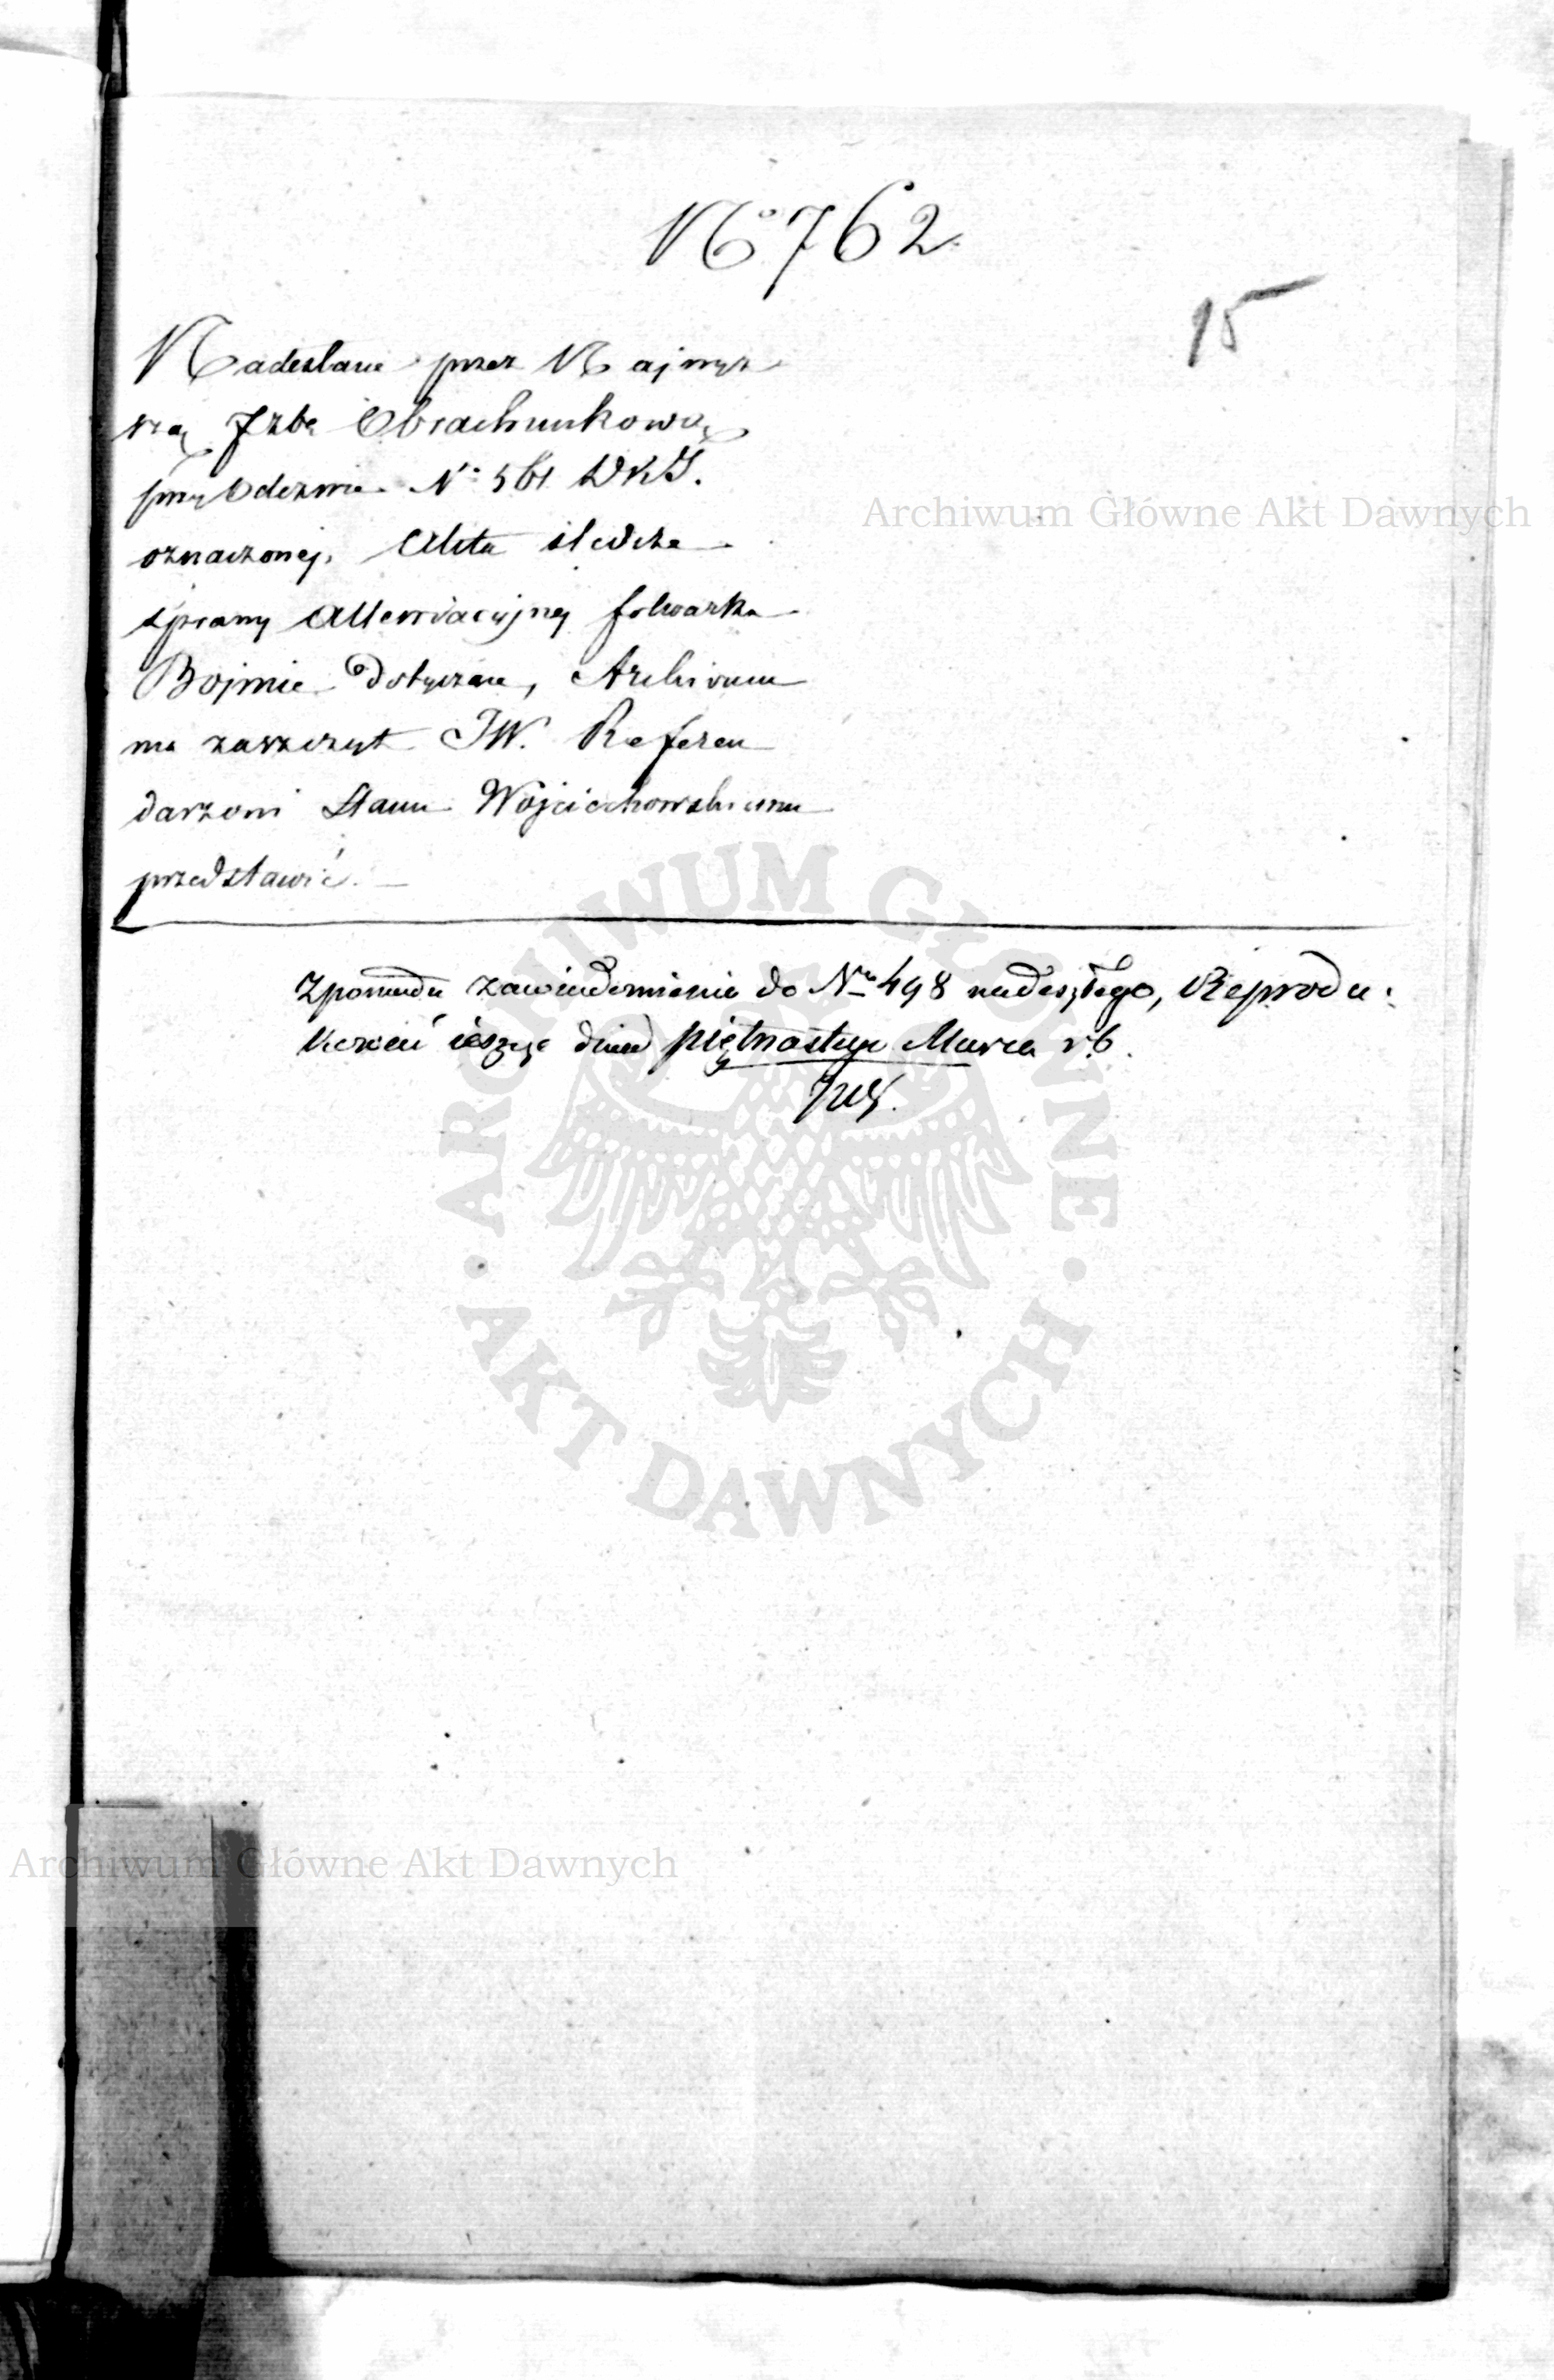 No 762
15
Nadesłane przez Najwyż
szą Jzbę Obrachunkową
przy Odezwie No 561 WKJ.
oznaczonej, Akta śledcze
sprawy Allewiacyjney folwarku
Bojmie dotyczące, Archiwum
ma zaszczyt JW. Referen
darzowi Stanu Wojciechowskiemu
przedstawić. —
Zpowodu zawiadomienia do No 498 nadeszłego, Reprodu:
kować ieszcze dnia piętnastego Marca r.b.
Archiwum Główne Akt Dawnych
ARCHIWUM GŁÓWNE · AKT DAWNYCH ·
Archiwum Główne Akt Dawnych